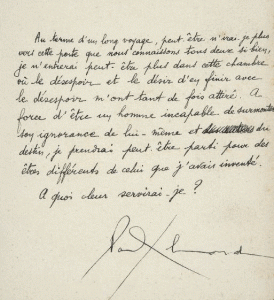 Au terme d'un long voyage, peut-être n'irai-je plus
vers cette porte que nous connaissons tous deux si bien,
je n'entrerai peut-être plus dans cette chambre
où le désespoir et le désir d'en finir avec
le désespoir m'ont tant de fois attiré. A
force d'être un homme incapable de surmonter
son ignorance de lui-même et du
destin, je prendrai peut-être parti pour des
êtres différents de celui que j'avais inventé.
A quoi leur servirai-je ?
Paul Eluard